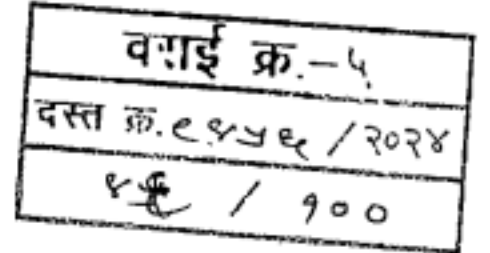 वसई क्र.-५
दस्त क्र. ९४५६ /२०२४
/ १००